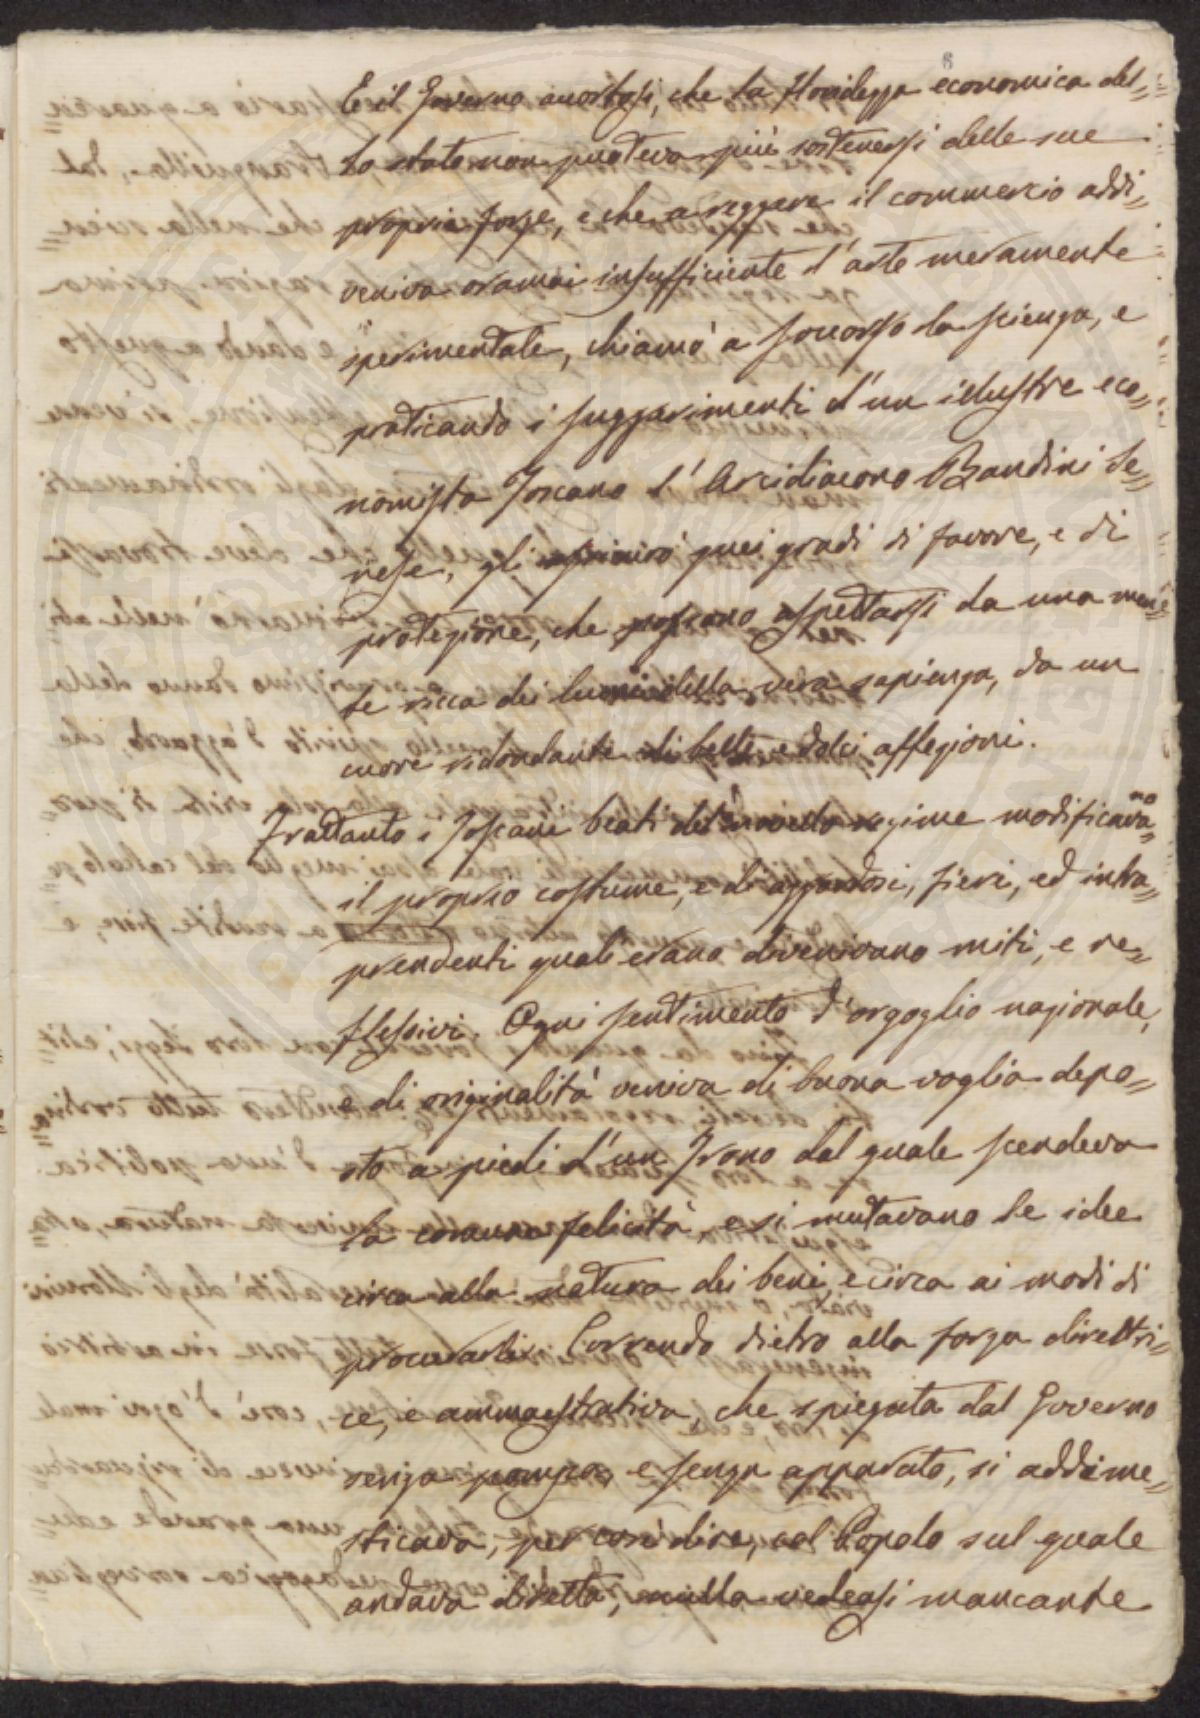 6
E il Governo accortosi, che la floridezza economica del=
lo stato non puoteva più sostenersi delle sue
proprie forze, e che a reggere il commercio addi=
veniva oramai insufficiente l'arte meramente
sperimentale, chiamò a soccorso la scienza, e
praticando i suggerimenti d'un illustre eco=
nomista Toscano l'Arcidiacono Bandini Se=
nese, gli quei gradi di favore, e di
protezione, che possano aspettarsi da una men=
te ricca dei lumi della vera sapienza, da un
cuore ridondante di belle e dolci affezioni.
Frattanto i Toscani beati del novello regime modificavano
il proprio costume, e di azzardosi, fieri, ed intra=
prendenti quali erano divenivano miti, e re=
flessivi. Ogni sentimento d'orgoglio nazionale,
e di originalità veniva di buona voglia depo=
sto a piedi d'un Trono dal quale scendeva
la comune felicità, e si mutavano le idee
circa alla natura dei beni, e circa ai modi di
procurarli. Correndo dietro alla forza direttri=
ce, e ammaestrativa, che spiegata dal Governo
senza pompa, e senza apparato, si addime=
sticava, per così dire, col Popolo sul quale
andava diretta, nulla vedeasi mancante